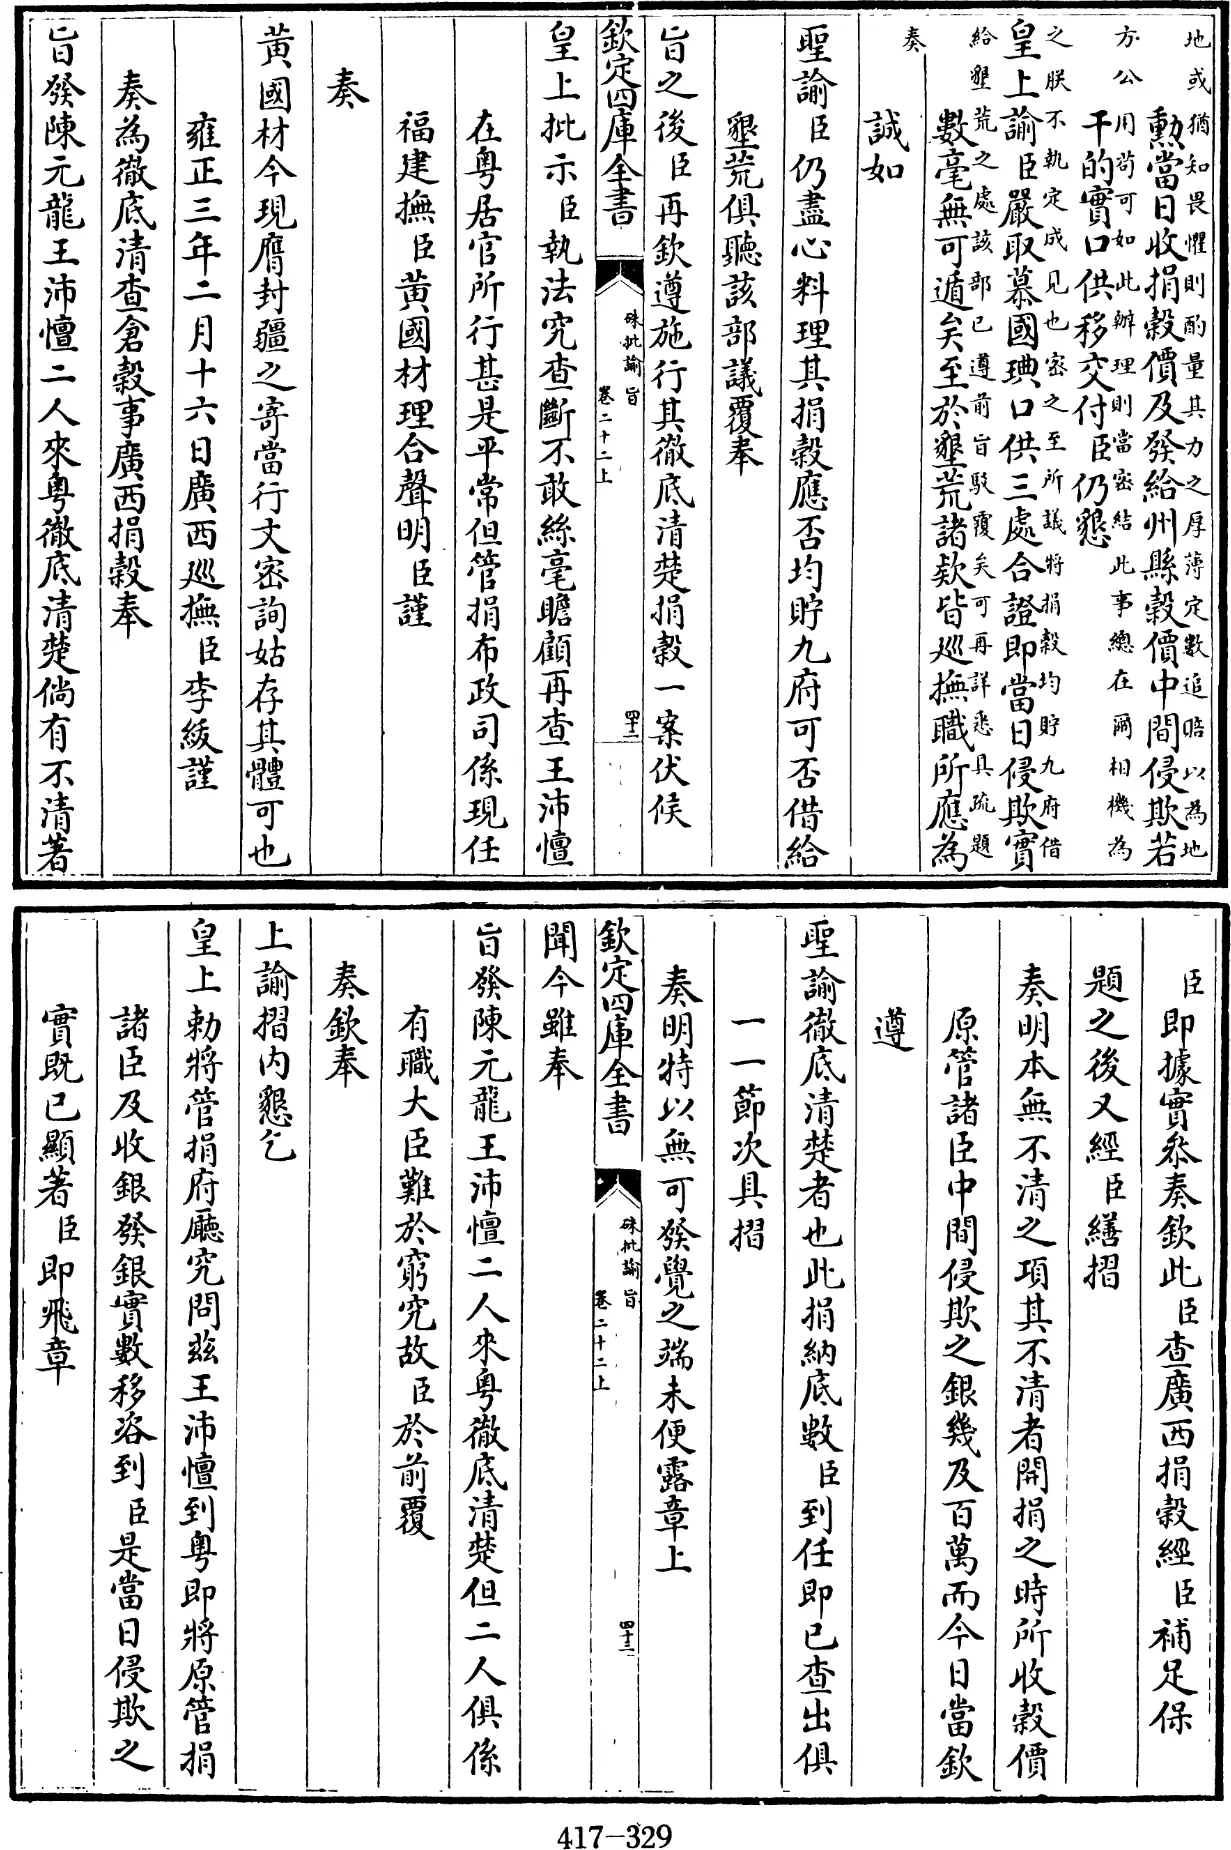 地或猶知畏懼則酌量其力之厚薄定數追賠以為地
勲當日收捐穀價及發給州縣穀價中間侵欺若
方公用苟可如此辦理則當密結此事總在爾相機為
干的實口供移交付臣仍懇
之朕不執定成見也密之至所議將捐穀均貯九府借
皇上諭臣嚴取慕國琠口供三處合證即當日侵欺實
給墾荒之處該部已遵前旨駁覆矣可再詳悉具疏題
數毫無可遁矣至於墾荒諸欵皆巡撫職所應為
奏
誠如
聖諭臣仍盡心料理其捐穀應否均貯九府可否借給
墾荒俱聽該部議覆奉
旨之後臣再欽遵施行其徹底清楚捐穀一案伏候
欽定四庫全書
硃批諭旨
卷二十二上
四十二
皇上批示臣執法究查斷不敢絲毫瞻顧再查王沛憻
在粤居官所行甚是平常但管捐布政司係現任
福建撫臣黄國材理合聲明臣謹
奏
黄國材今現膺封疆之寄當行文密詢姑存其體可也
雍正三年二月十六日廣西巡撫臣李紱謹
奏為徹底清查倉穀事廣西捐穀奉
旨發陳元龍王沛憻二人來粤徹底清楚倘有不清著
臣即據實叅奏欽此臣查廣西捐穀經臣補足保
題之後又經臣繕摺
奏明本無不清之項其不清者開捐之時所收穀價
原管諸臣中間侵欺之銀幾及百萬而今日當欽
遵
聖諭徹底清楚者也此捐納底數臣到任即已查出俱
一一節次具摺
奏明特以無可發覺之端未便露章上
欽定四庫全書
硃批諭旨
卷二十二上
四十三
聞今雖奉
旨發陳元龍王沛憻二人來粤徹底清楚但二人俱係
有職大臣難於窮究故臣於前覆
奏欽奉
上諭摺内懇乞
皇上勅將管捐府廳究問兹王沛憻到粤即將原管捐
諸臣及收銀發銀實數移咨到臣是當日侵欺之
實既已顯著臣即飛章
417-329